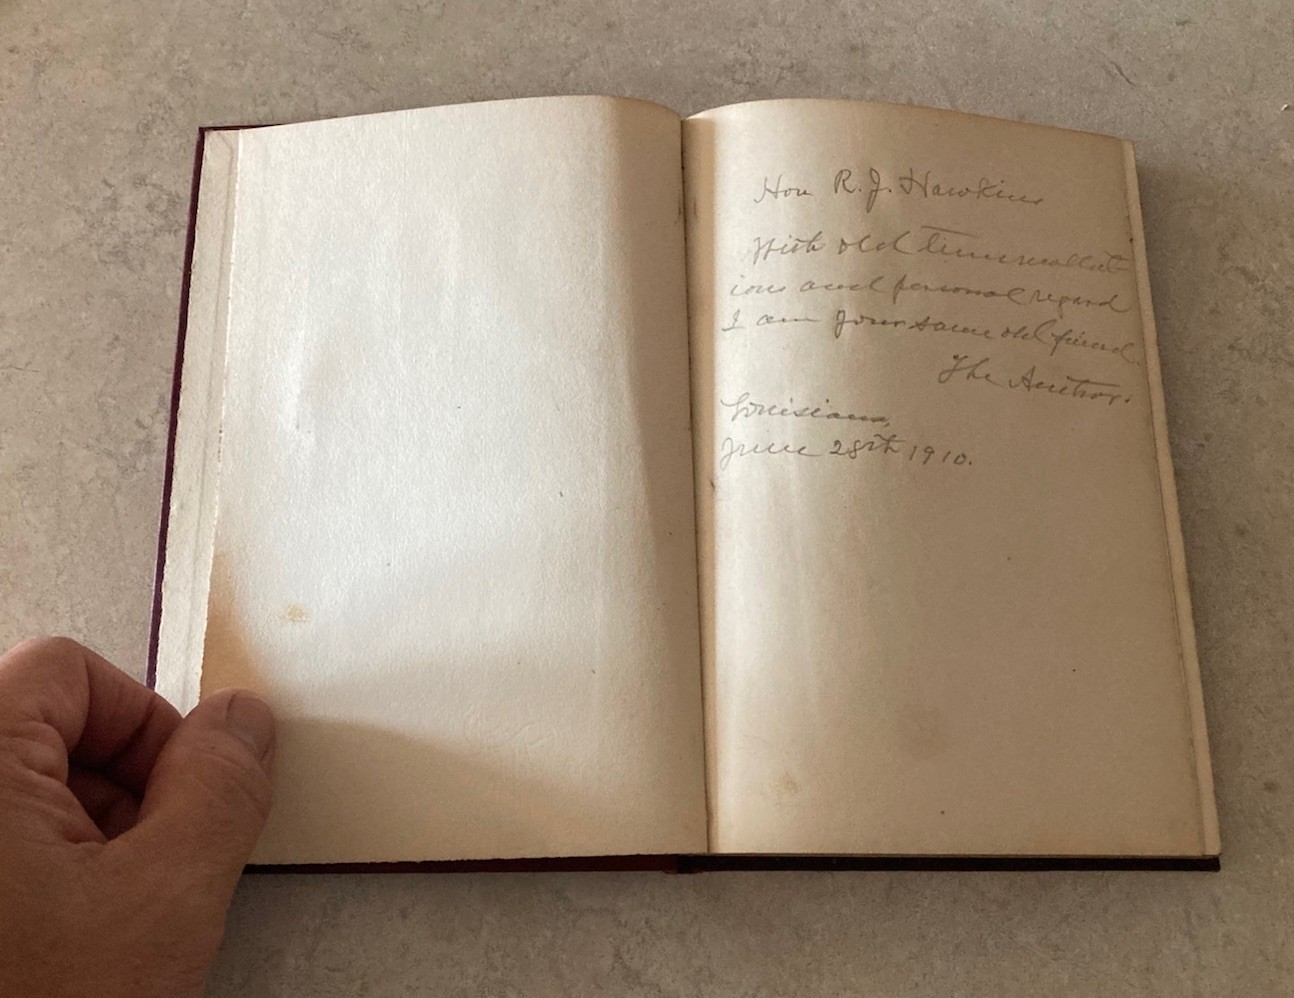 Hon R. J. Hawkins
With old time recollect
ions and personal regard
I am your same old friend.
The Author.
Louisiana,
June 28th 1910.